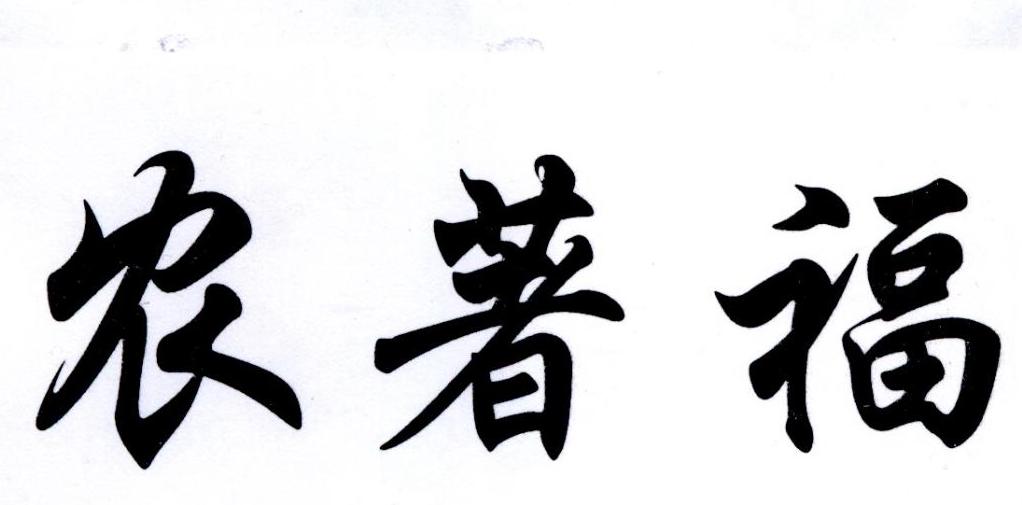 农著福